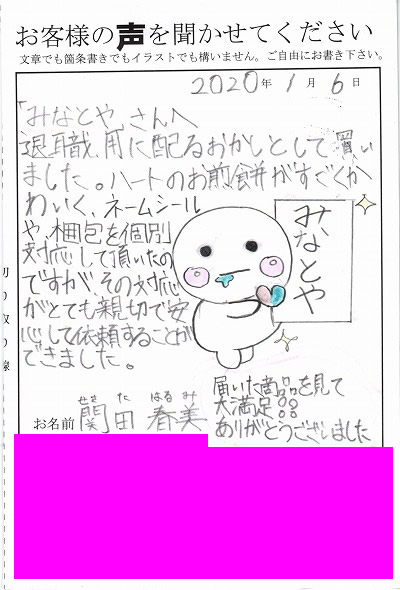 お客様の声を聞かせてください
文章でも箇条書きでもイラストでも構いません。ご自由にお書き下さい。
2020年 1月 6日
「みなとや」さんへ
退職用に配るおかしとして買い
ました。ハートのお煎餅がすごくか
わいく、ネームシール
や、梱包を個別
対応して頂いたの
ですが、その対応
がとても親切で安
心して依頼することが
できました。
みなとや
切り取り線
せき た はるみ
お名前 関田 春美
届いた商品を見て
大満足
ありがとうございました